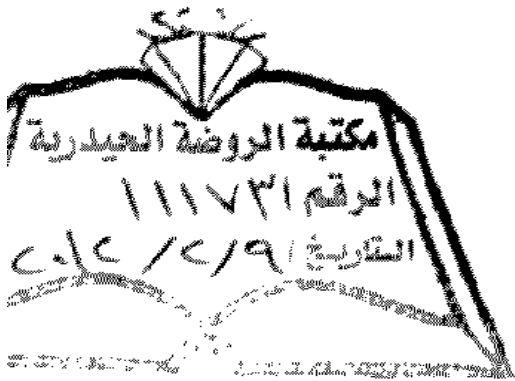 مكتبة الروضة الحيدرية
الرقم / ١١١٧٣
التاريخ / ٩ / ٢ / ٢٠١٢